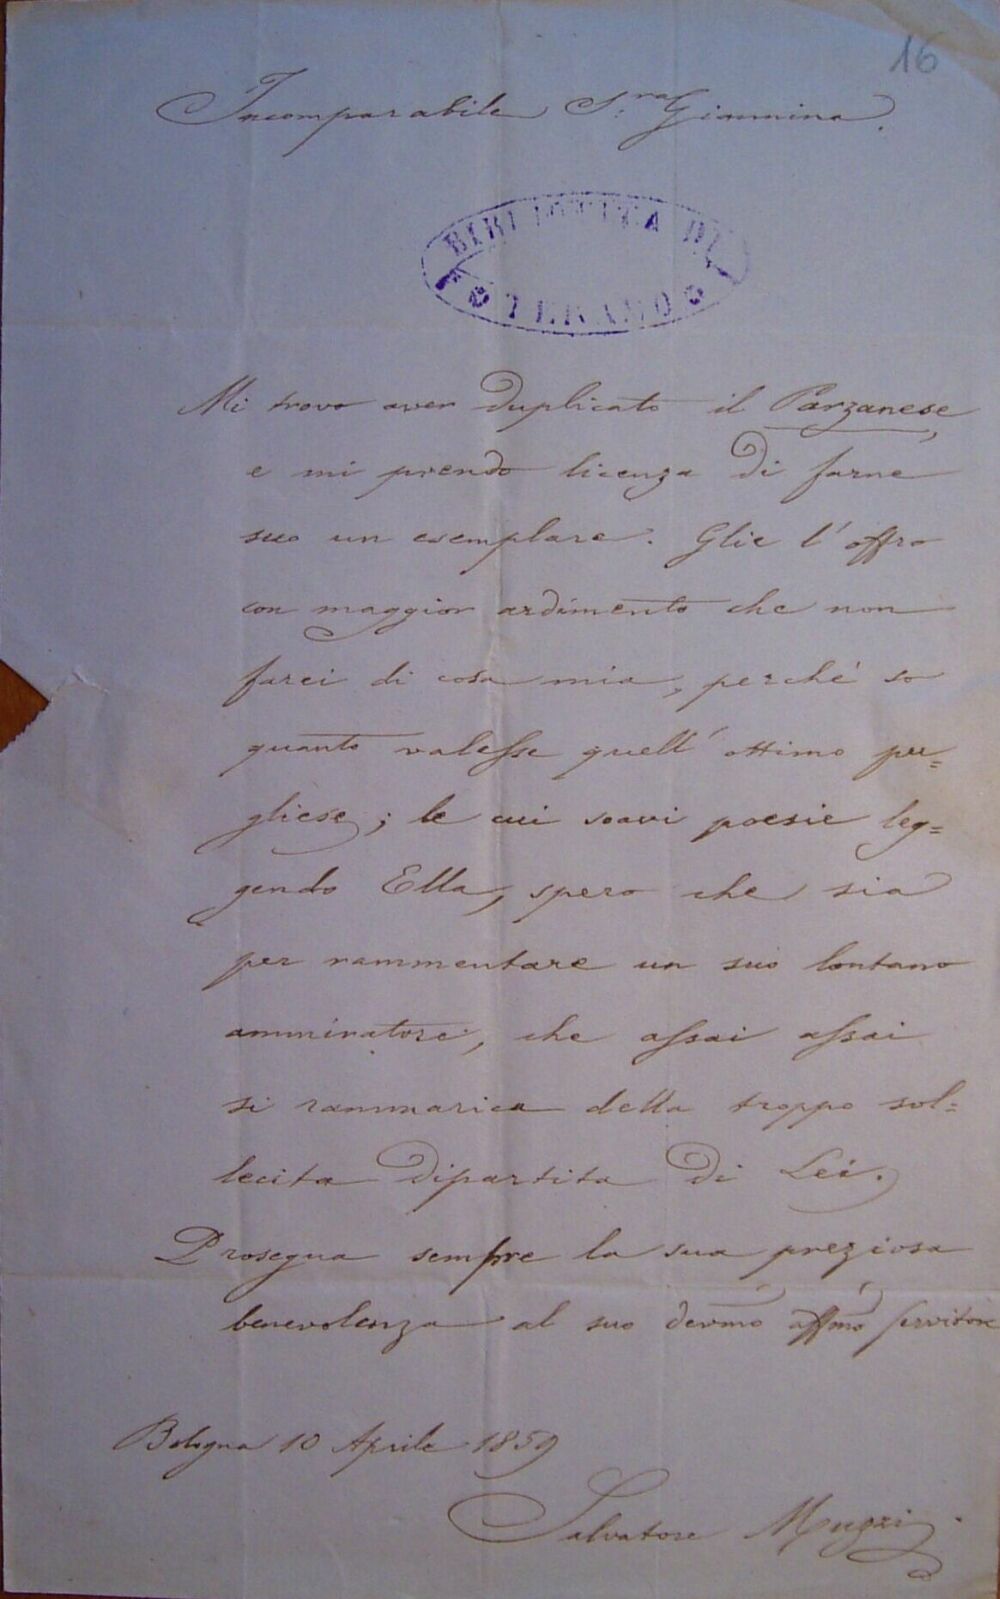 16
Incomparabile S.ra Giannina.
BIBLIOTECA DI
TERAMO
Mi trovo aver duplicato il Parzanese,
e mi prendo licenza di farne
suo un esemplare. Glie l'offro
con maggior ardimento che non
farei di cosa mia, perché so
quanto valesse quell'ottimo pu=
gliese; le cui soavi poesie leg=
gendo Ella, spero che sia
per rammentare un suo lontano
ammiratore, che assai assai
si rammarica della troppo sol=
lecita dipartita di Lei.
Prosegua sempre la sua preziosa
benevolenza al suo devmo affmo servitore
Bologna 10 Aprile 1859
Salvatore Muzzi.